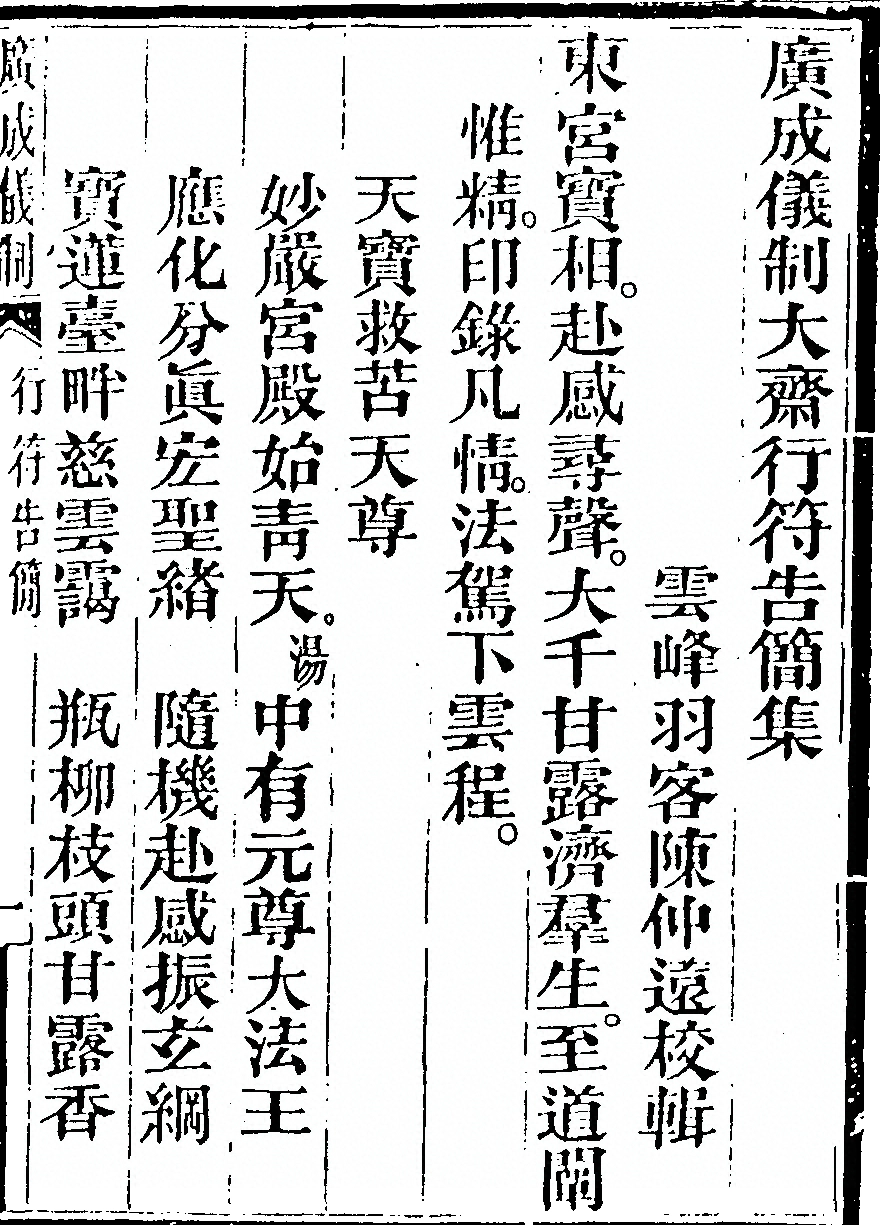 廣成儀制大齋行符告簡集
雲峰羽客陳仲遠校輯
東宮寶相。赴感尋聲。大千甘露濟羣生。至道闡
惟精。印錄凡情。法駕下雲程。
天寶救苦天尊
妙嚴宮殿始青天。湯中有元尊大法王
應化分眞宏聖緒　隨機赴感振玄綱
寶蓮臺畔慈雲靄　瓶柳枝頭甘露香
廣成儀制　行符告簡　一